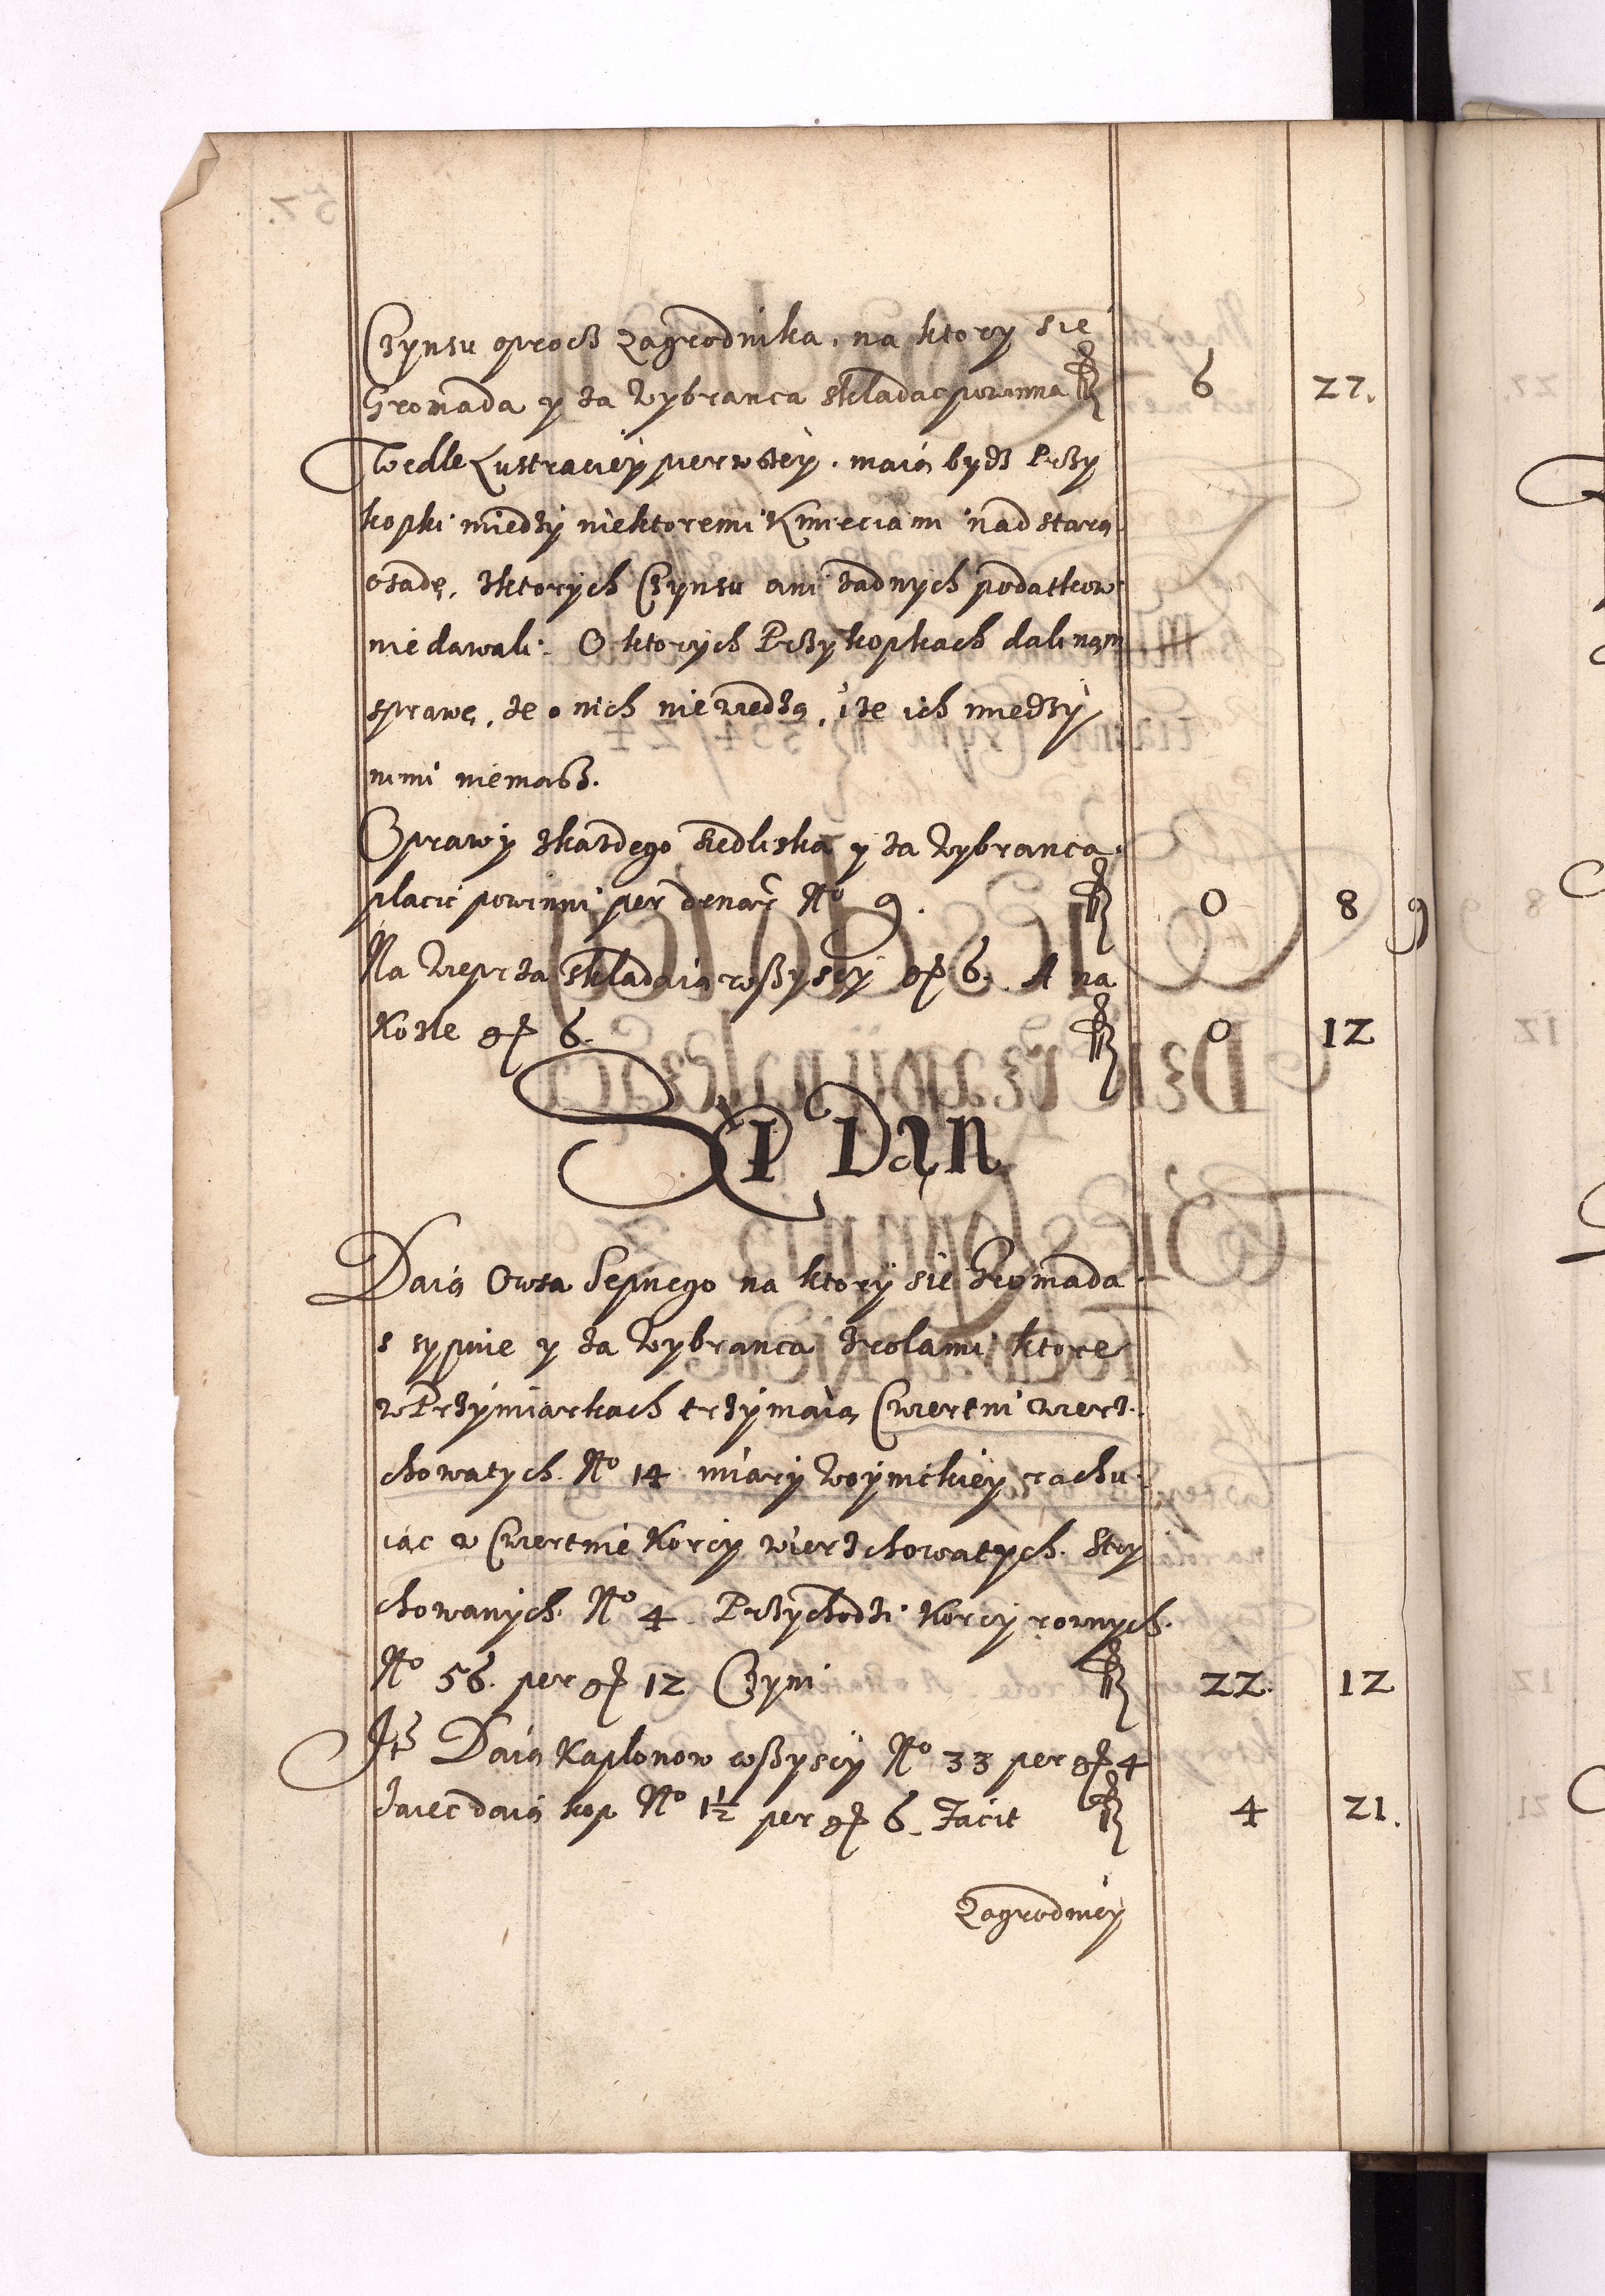 Czynsu oprocz Zagrodnika, na ktory sie
Gromada y za Wybranca składac powinna fl 6 27.
Wedle Lustraciey pierwszey. maią bydz Przy
kopki miedzy niektoremi Kmieciami nad starą
osadę, zktorych Czynsu ani żadnych podatkow
nie dawali. O ktorych Przykopkach dali nąm
sprawę, że o nich nie wiedzą, i że ich miedzy
nimi niemasz.
Oprawy zkażdego siedliska y za Wybranca
płacic powinni per denar No 9. fl 0 8 9
Na Wieprza składaią wszyscy gr 6. A na
Kozle gr 6. fl 0 12
Sep Dąn
Daią Owsa Sepnego na ktory sie Gromada
s sypuie y za Wybranca zrolami ktore
w Przymiarkach trzymaią Cwiertni wierz
chowatych No 14 miary Woynickiey rachu
iąc w Cwiertnie Korcy wierzchowatych. Stry
chowanych No 4 Przychodzi Korcy rownych
No 56. per gr 12 Czyni fl 22. 12
Ite Daią Kapłonow wszyscy No 33 per gr 4
Jaiec daią kop No 1½ per gr 6. Facit fl 4 21.
Zagrodnicy